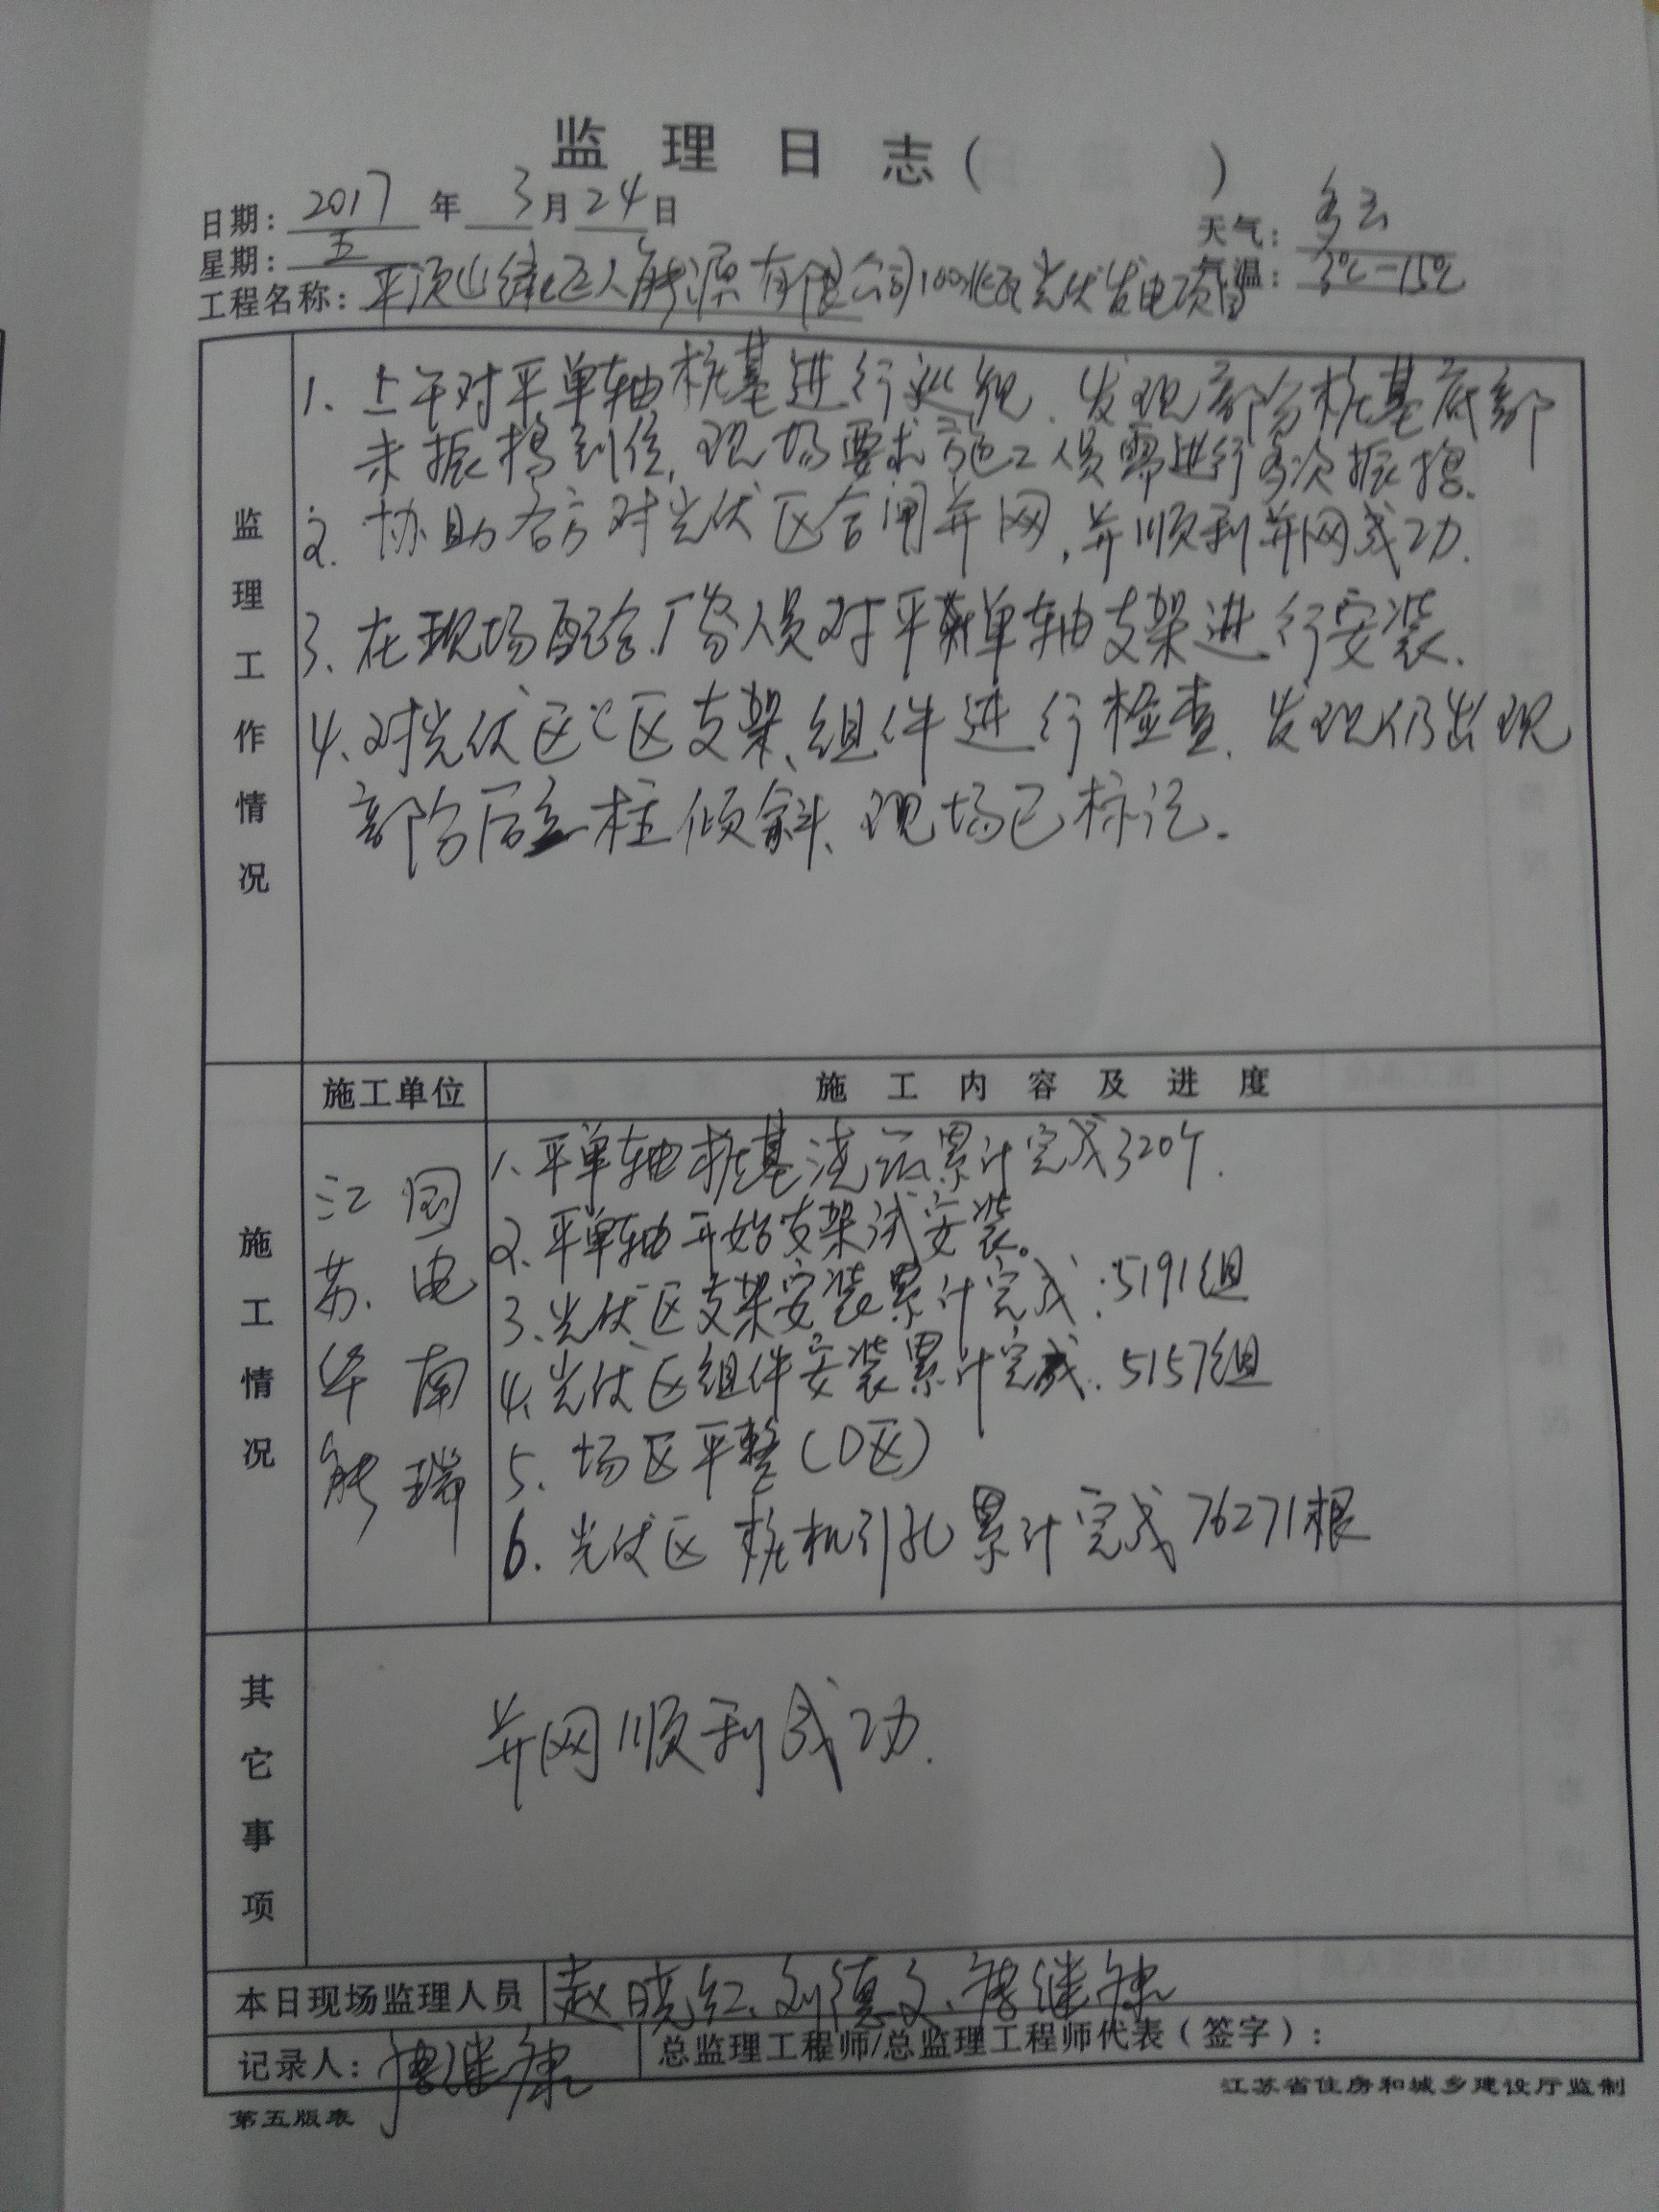 监理日志( )
日期: 2017 年 3月24日
天气: 多云
星期: 五
气温: 3℃-15℃
工程名称: 平顶山 能源有限公司100兆瓦光伏发电项目
监理工作情况
1、上午对平单轴桩基进行巡视、发现部分桩基底部
未振捣到位,现场要求施工人员需进行多次振捣.
2. 协助各方对光伏区合闸并网,并顺利并网成功.
3、在现场配合厂家人员对平单轴支架进行安装.
4、对光伏区C区支架、组件进行检查、发现仍出现
部分后立柱倾斜、现场已标记.
施工单位
施工内容及进度
施工情况
江苏华能
国电南瑞
1、平单轴桩基浇筑累计完成320个.
2、平单轴开始支架试安装。
3、光伏区支架安装累计完成:5191组
4、光伏区组件安装累计完成:5157组
5、场区平整(D区)
6.光伏区桩机引孔累计完成76271根
其它事项
并网顺利成功.
本日现场监理人员
赵晓红、刘德文、唐继康
记录人: 唐继康
总监理工程师/总监理工程师代表(签字):
第五版表
江苏省住房和城乡建设厅监制